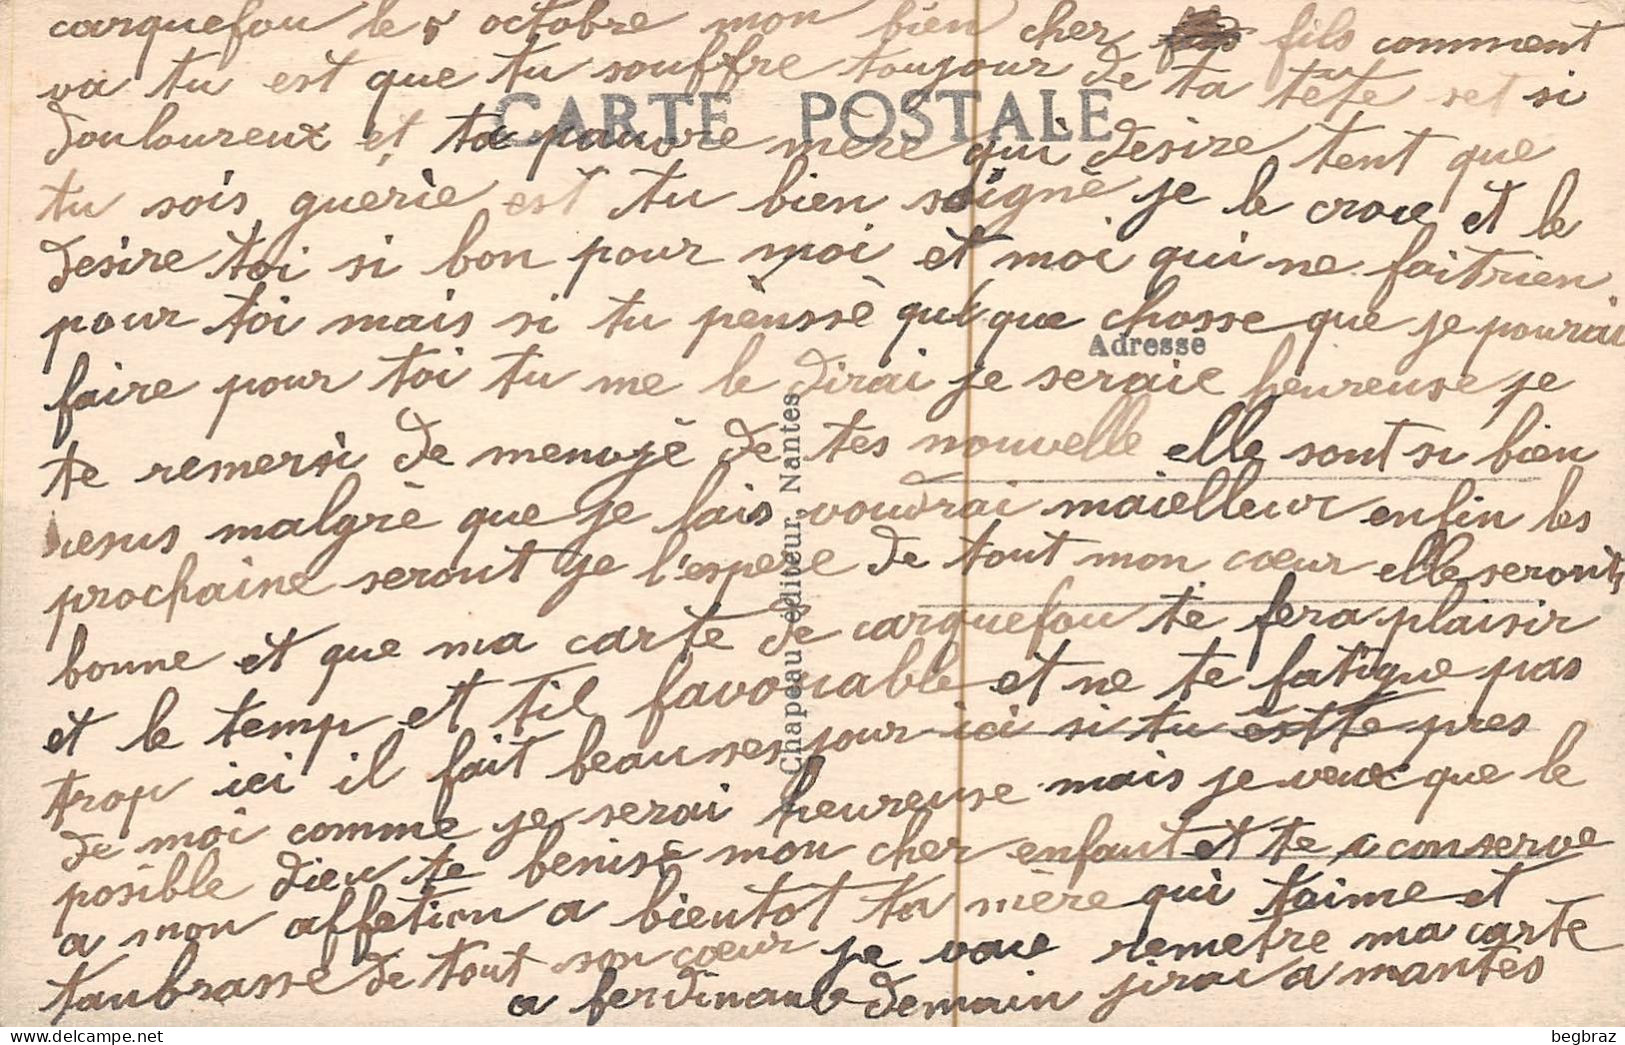 carquefou le 5 octobre mon bien cher fils comment
va tu est que tu souffre toujour de ta tête set si
CARTE POSTALE
douloureux et ta pauvre mere qui desire tent que
tu sois guerie est tu bien soigné je le croie et le
desire toi si bon pour moi et moi qui ne fait rien
pour toi mais si tu pensse quelque chosse que je pourai
Adresse
faire pour toi tu me le dirai je seraie heureuse je
te remersi de menvoyé de tes nouvelle elle sont si bien
resus malgrè que je lais voudrai maielleur enfin les
prochaine seront je l'espere de tout mon cœur elle seront
bonne et que ma carte de carquefou te fera plaisir
et le temp et til favouable et ne te fatigue pas
trop ici il fait beau ses jour ici si tu estte pres
de moi comme je serai heureuse mais je veux que le
posible dieu te benisé mon cher enfant et te conserve
a mon affetion a bientot ta mère qui taime et
tanbrasse de tout son cœur je vaie remetre ma carte
a ferdinand demain jirai a mantes
Chapeau éditeur, Nantes
begbraz